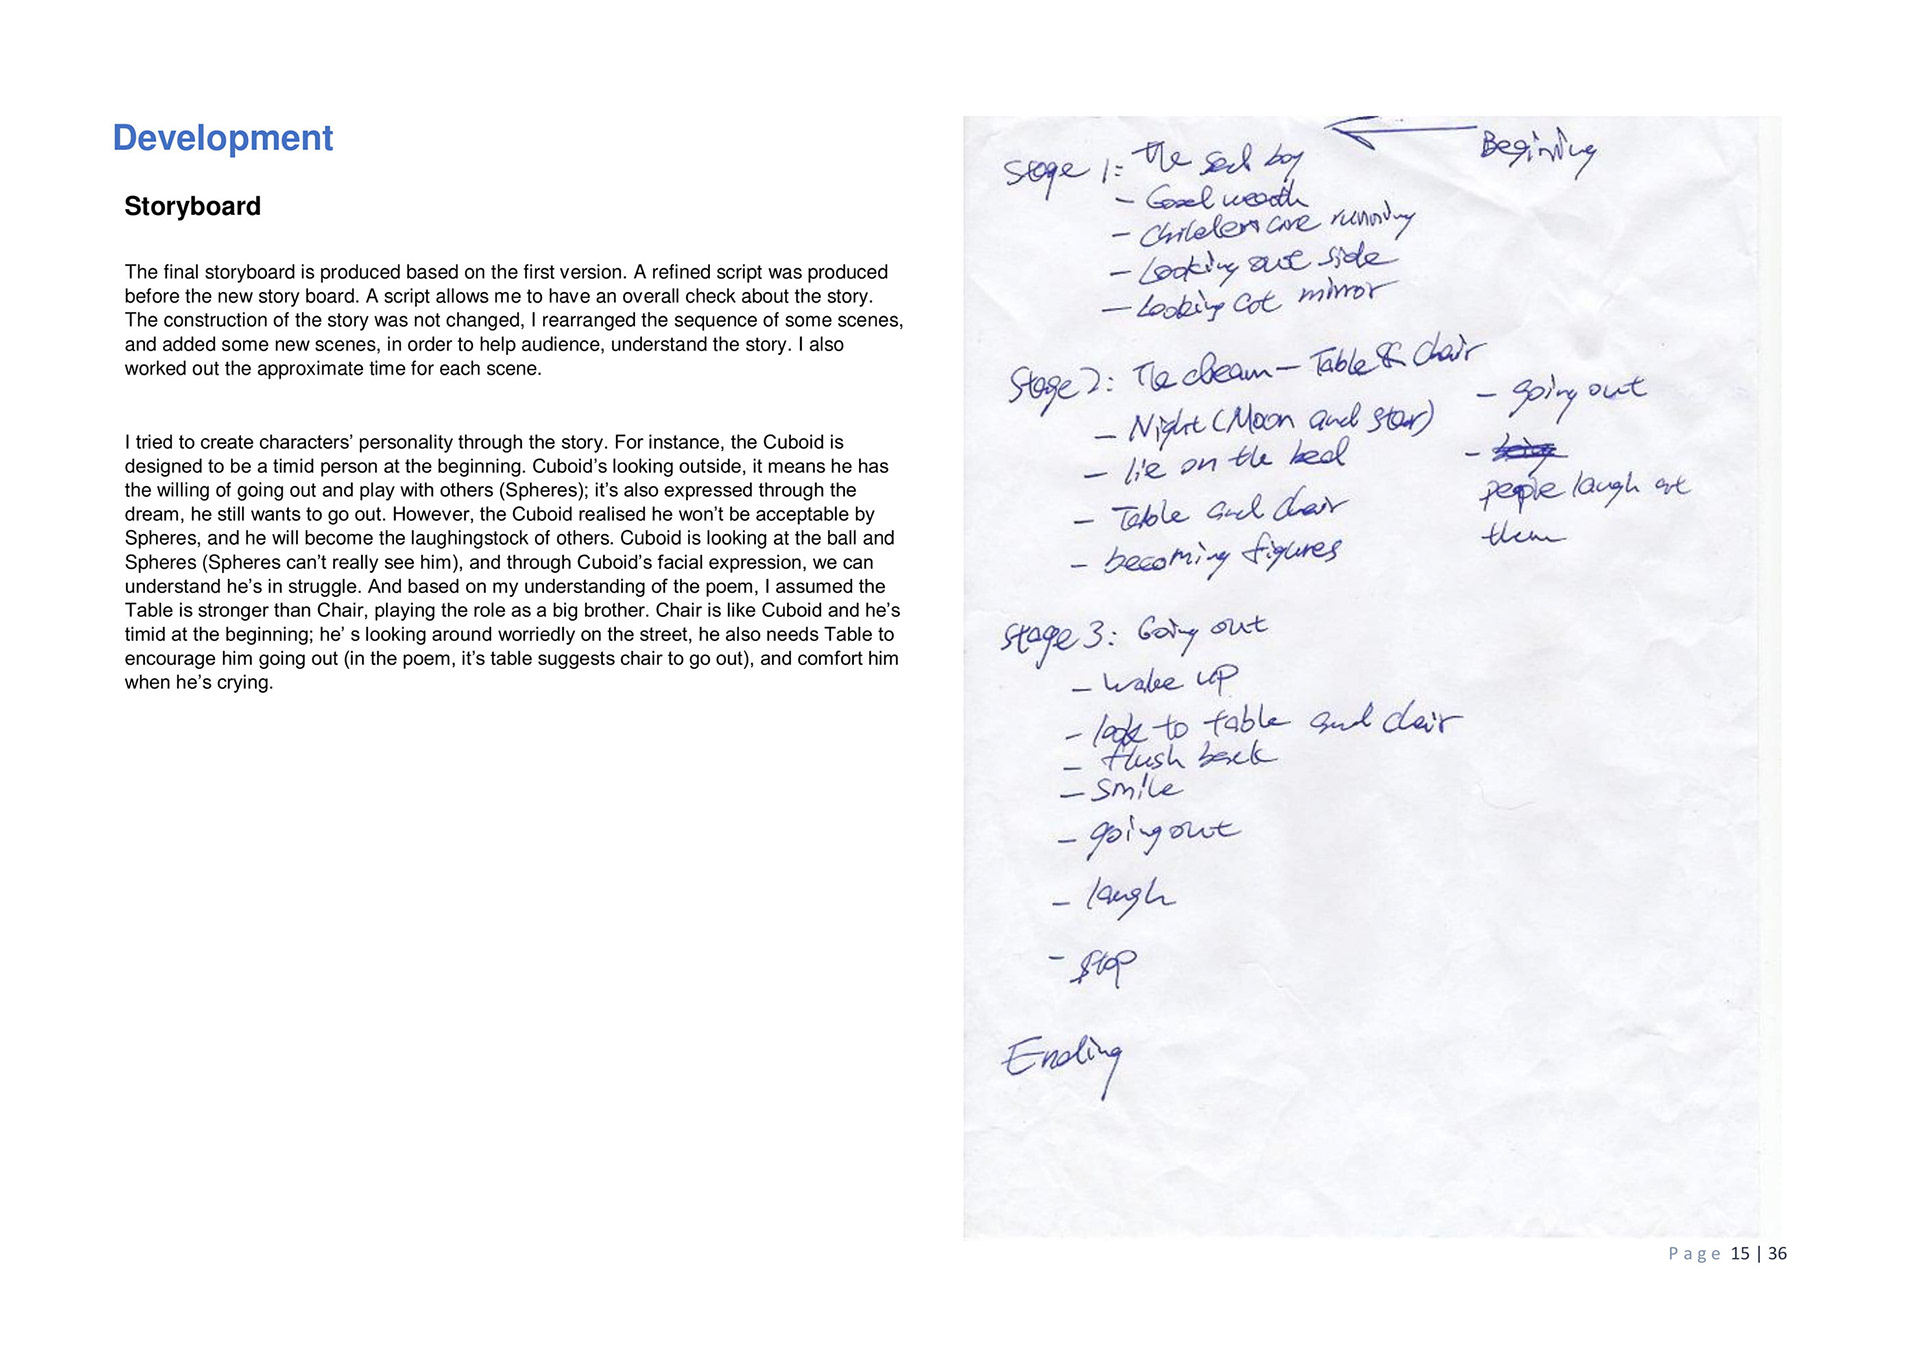 Development
Storyboard
The final storyboard is produced based on the first version. A refined script was produced
before the new story board. A script allows me to have an overall check about the story.
The construction of the story was not changed, I rearranged the sequence of some scenes,
and added some new scenes, in order to help audience, understand the story. I also
worked out the approximate time for each scene.
I tried to create characters’ personality through the story. For instance, the Cuboid is
designed to be a timid person at the beginning. Cuboid’s looking outside, it means he has
the willing of going out and play with others (Spheres); it’s also expressed through the
dream, he still wants to go out. However, the Cuboid realised he won’t be acceptable by
Spheres, and he will become the laughingstock of others. Cuboid is looking at the ball and
Spheres (Spheres can’t really see him), and through Cuboid’s facial expression, we can
understand he’s in struggle. And based on my understanding of the poem, I assumed the
Table is stronger than Chair, playing the role as a big brother. Chair is like Cuboid and he’s
timid at the beginning; he’ s looking around worriedly on the street, he also needs Table to
encourage him going out (in the poem, it’s table suggests chair to go out), and comfort him
when he’s crying.
Beginning
Stage 1: The sad boy
- Good
- Childers are running
- Looking out side
- Looking at mirror
Stage 2: The dream - Table & chair
- Night (Moon and star)
- lie on the bed
- Table and chair
- becoming figures
- going out
-
people laugh at
them
Stage 3: Going out
- wake up
- look to table and chair
- flush back
- smile
- going out
- laugh
- stop
Ending
Page 15 | 36